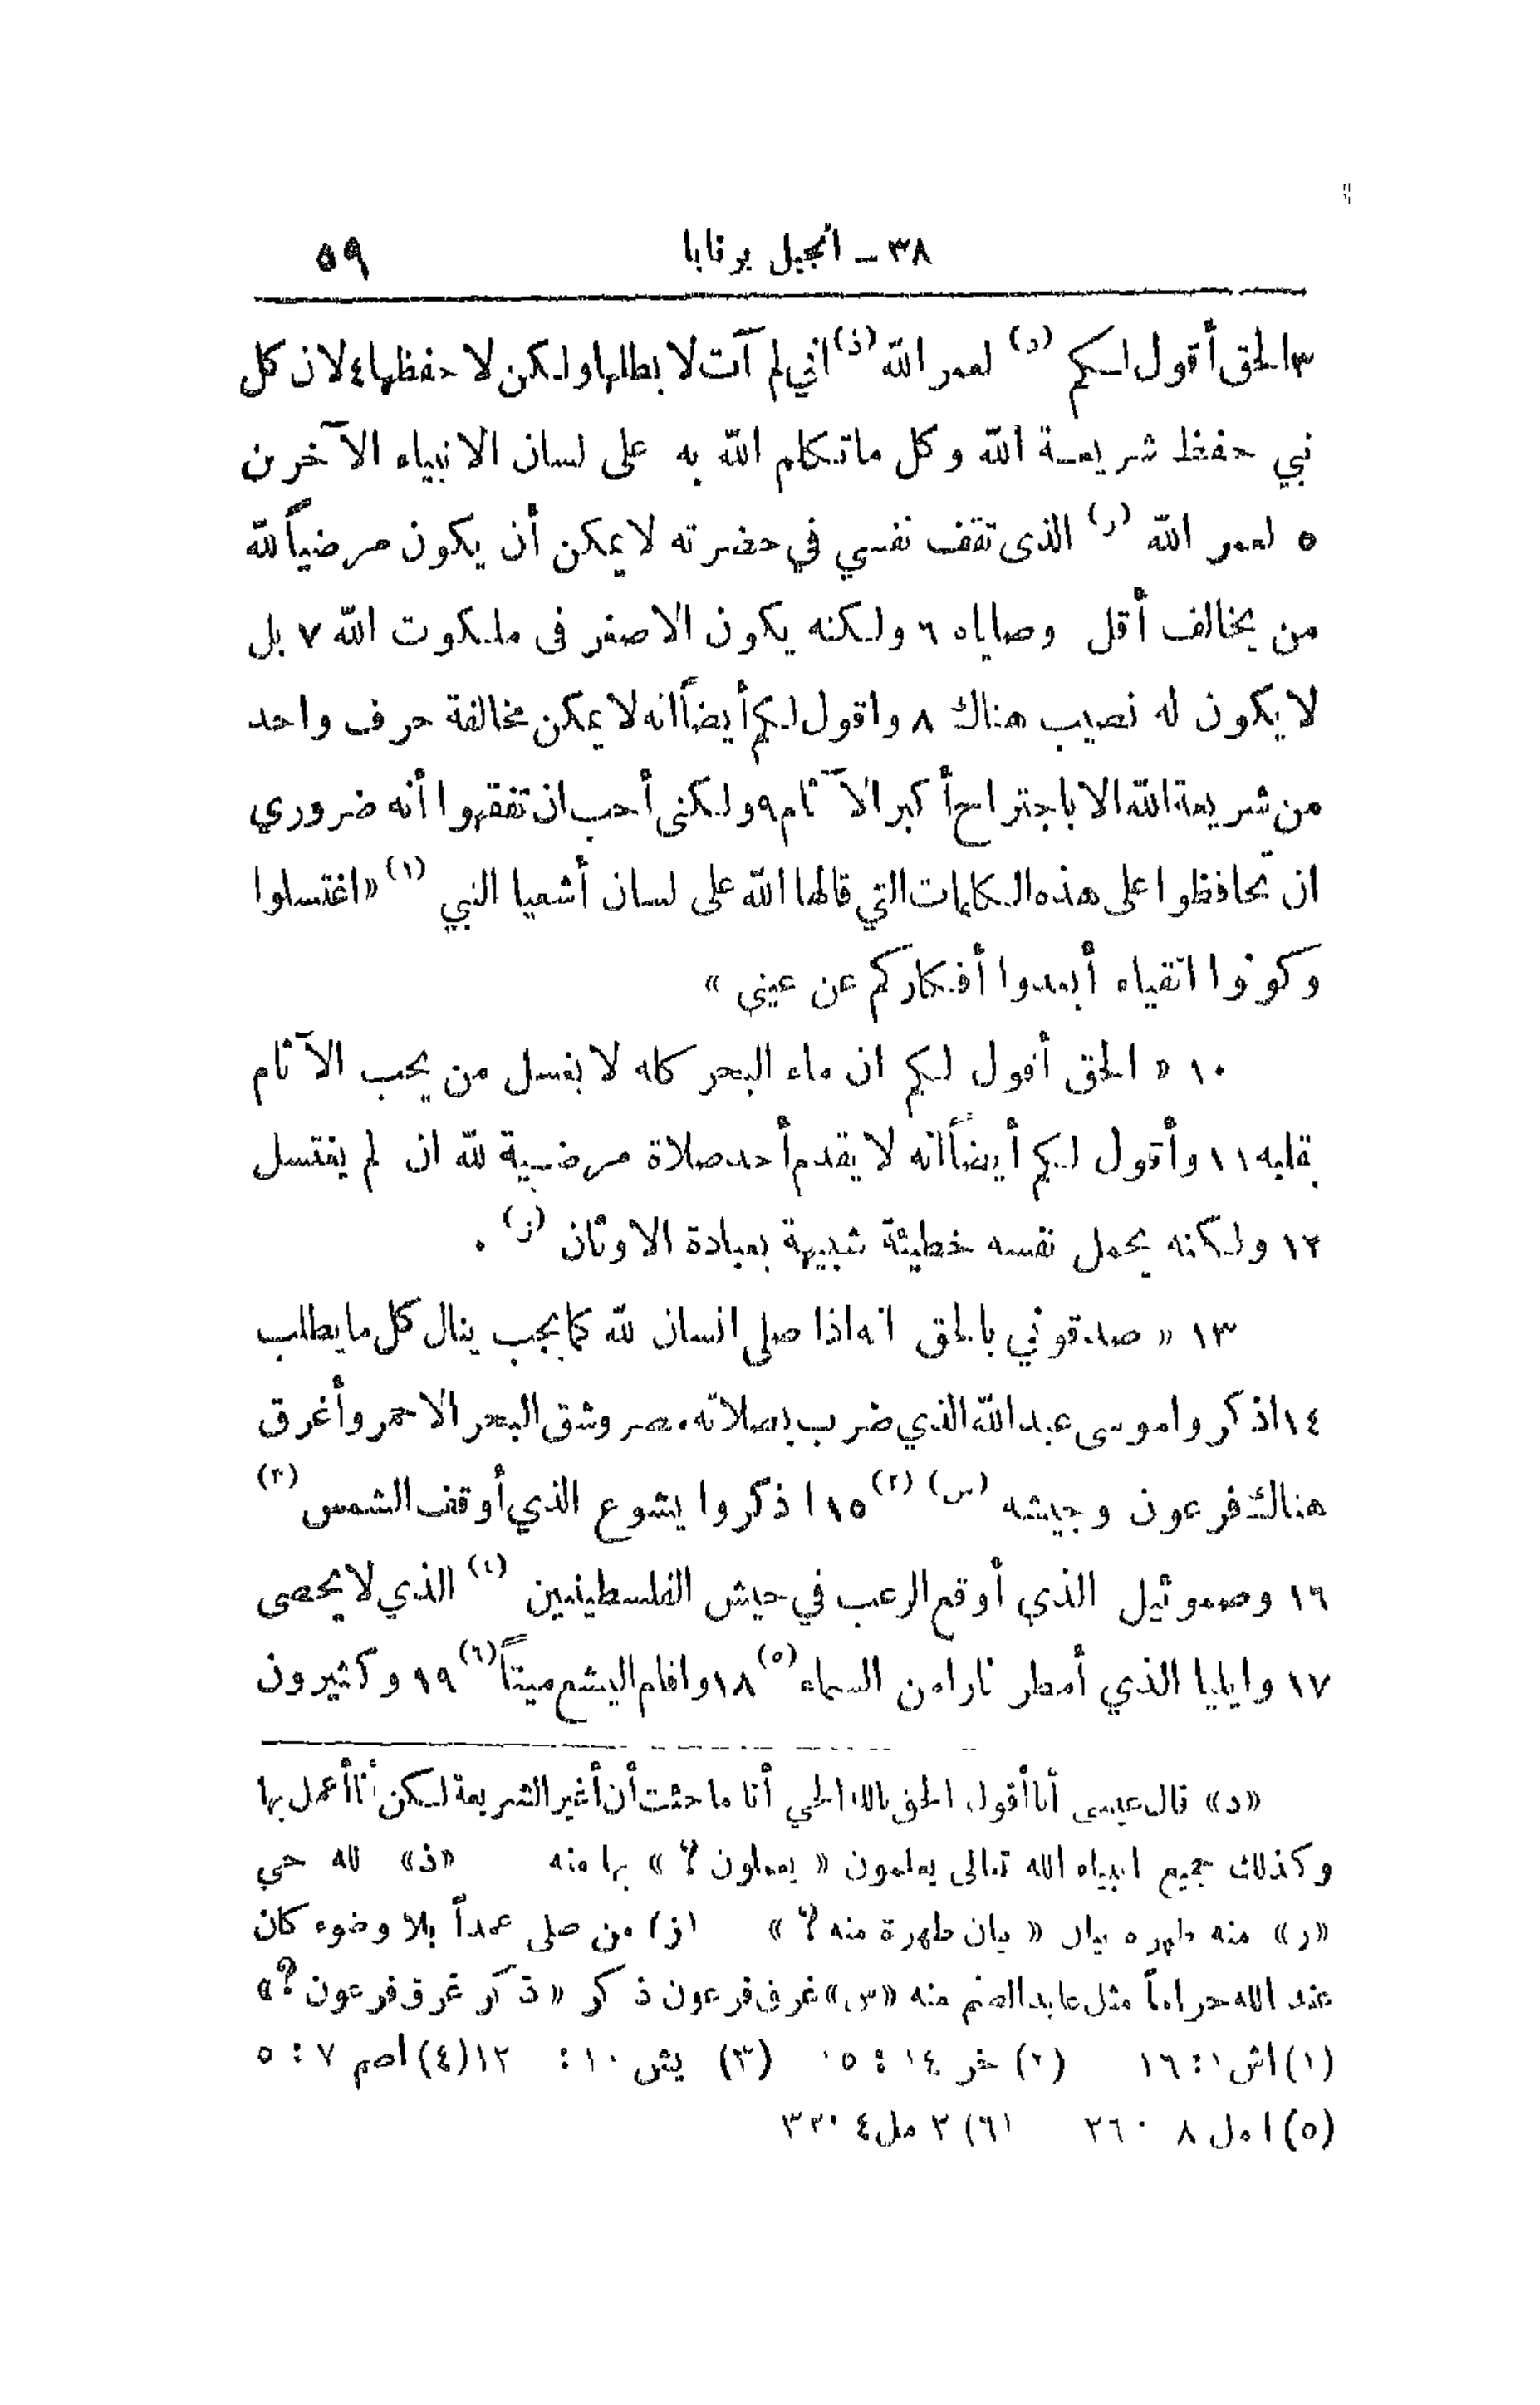 ٣٨ – انجيل برنابا ٥٩
٣ الحق أقول لكم (د) لعمر الله (ذ) اني لم آت لابطلها ولكن لاحفظها ٤ لان كل
نبي حفظ شريعة الله وكل ماتكلم الله به على لسان الانبياء الآخرين
٥ لعمر الله (ر) الذى تقف نفسي في حضرته لايمكن أن يكون مرضياً لله
من يخالف أقل وصاياه ٦ ولكنه يكون الاصغر فى ملكوت الله ٧ بل
لايكون له نصيب هناك ٨ واقول لكم أيضاً انه لايمكن مخالفة حرف واحد
من شريعة الله الا باجتراح أكبر الآثام ٩ ولكنى أحب ان تفقهوا أنه ضروري
ان تحافظوا على هذه الكلمات التي قالها الله على لسان أشعيا النبي (١) «اغتسلوا
وكونوا اتقياء أبعدوا أفكاركم عن عينى »
١٠ « الحق أقول لكم ان ماء البحر كله لا يغسل من يحب الآثام
بقلبه ١١ وأقول لكم أيضاً انه لا يقدم أحد صلاة مرضية لله ان لم يغتسل
١٢ ولكنه يحمل نفسه خطيئة شبيهة بعبادة الاوثان (ز) .
١٣ « صدقوني بالحق انه اذا صلى انسان لله كما يجب ينال كل ما يطلب
١٤ اذكروا موسى عبد الله الذي ضرب بصلاته مصر وشق البحر الاحمر وأغرق
هناك فرعون وجيشه (س) (٢) ١٥ اذكروا يشوع الذي أوقف الشمس (٣)
١٦ وصموئيل الذي أوقع الرعب في جيش الفلسطينيين (٤) الذي لا يحصى
١٧ وايليا الذي أمطر نارا من السماء (٥) ١٨ واقام اليشع ميتاً (٦) ١٩ وكثيرون
«د» قال عيسى أنا أقول الحق بالله الحي أنا ما جئت أن أغير الشريعة لكن أنا أعمل بها
وكذلك جميع انبياء الله تعالى يعلمون « يعملون ؟ » بها منه «ذ» لله حي
«ر» منه طهره بيان « بيان طهرة منه ؟ » (ز) من صلى عمداً بلا وضوء كان
عند الله حراماً مثل عابد الصنم منه «س» غرق فرعون ذكر « ذكر غرق فرعون ؟ »
(١) اش ١ : ١٦ (٢) خر ١٤ : ١٥ (٣) يش ١٠ : ١٢ (٤) اصم ٧ : ٥
(٥) ا مل ١٨ : ٣٦ (٦) ٢ مل ٤ : ٣٣